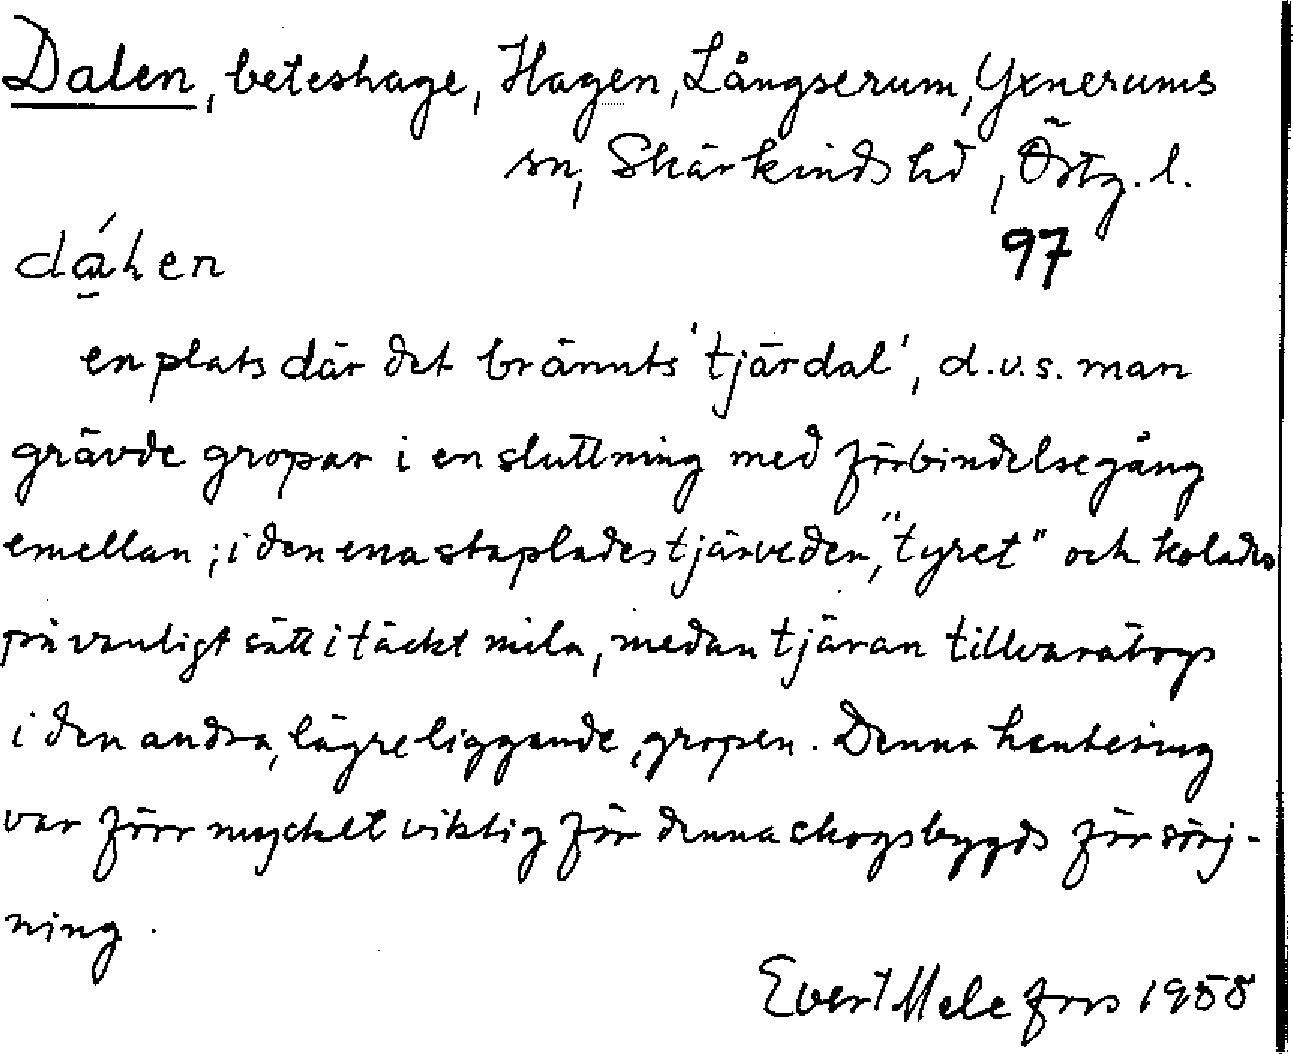 Dalen, beteshage, Hagen, Långserum, Yxnerums
sn, Skärkinds hd, Östg. l.
dá̱len
97
en plats där det brännts 'tjärdal', d.v.s. man
grävde gropar i en sluttning med förbindelsegång
emellan; i den ena staplades tjärveden, "tyret" och kolades
på vanligt sätt i täckt mila, medan tjäran tillvaratogs
i den andra, lägre liggande, gropen. Denna hantering
var förr mycket viktig för denna skogsbygds försörj-
ning.
Evert Melefors 1958